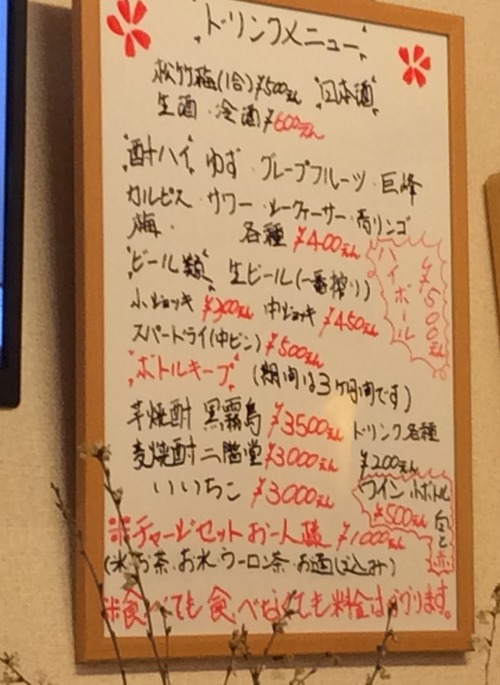 ドリンクメニュー
松竹梅(1合)¥500えん 日本酒
生酒・冷酒¥600えん
酎ハイ ゆず・グレープフルーツ・巨峰
カルピス・サワー・シークヮーサー・青リンゴ
梅・ 各種 ¥400えん
ハイボール ¥500えん
ビール類 生ビール(一番搾り)
小ジョッキ ¥300えん 中ジョッキ ¥450えん
スパードライ(中ビン) ¥500えん
ボトルキープ (期間は3ヶ月間です)
芋焼酎 黒霧島 ¥3500えん ドリンク各種
麦焼酎 二階堂 ¥3000えん ¥200えん
いいちこ ¥3000えん
ワイン 小ボトル
¥500えん 白と赤
※チャージセットお一人様 ¥1000えん
(氷・お茶・お水・ウーロン茶・お酒込み)
※食べても食べなくても料金はかります。